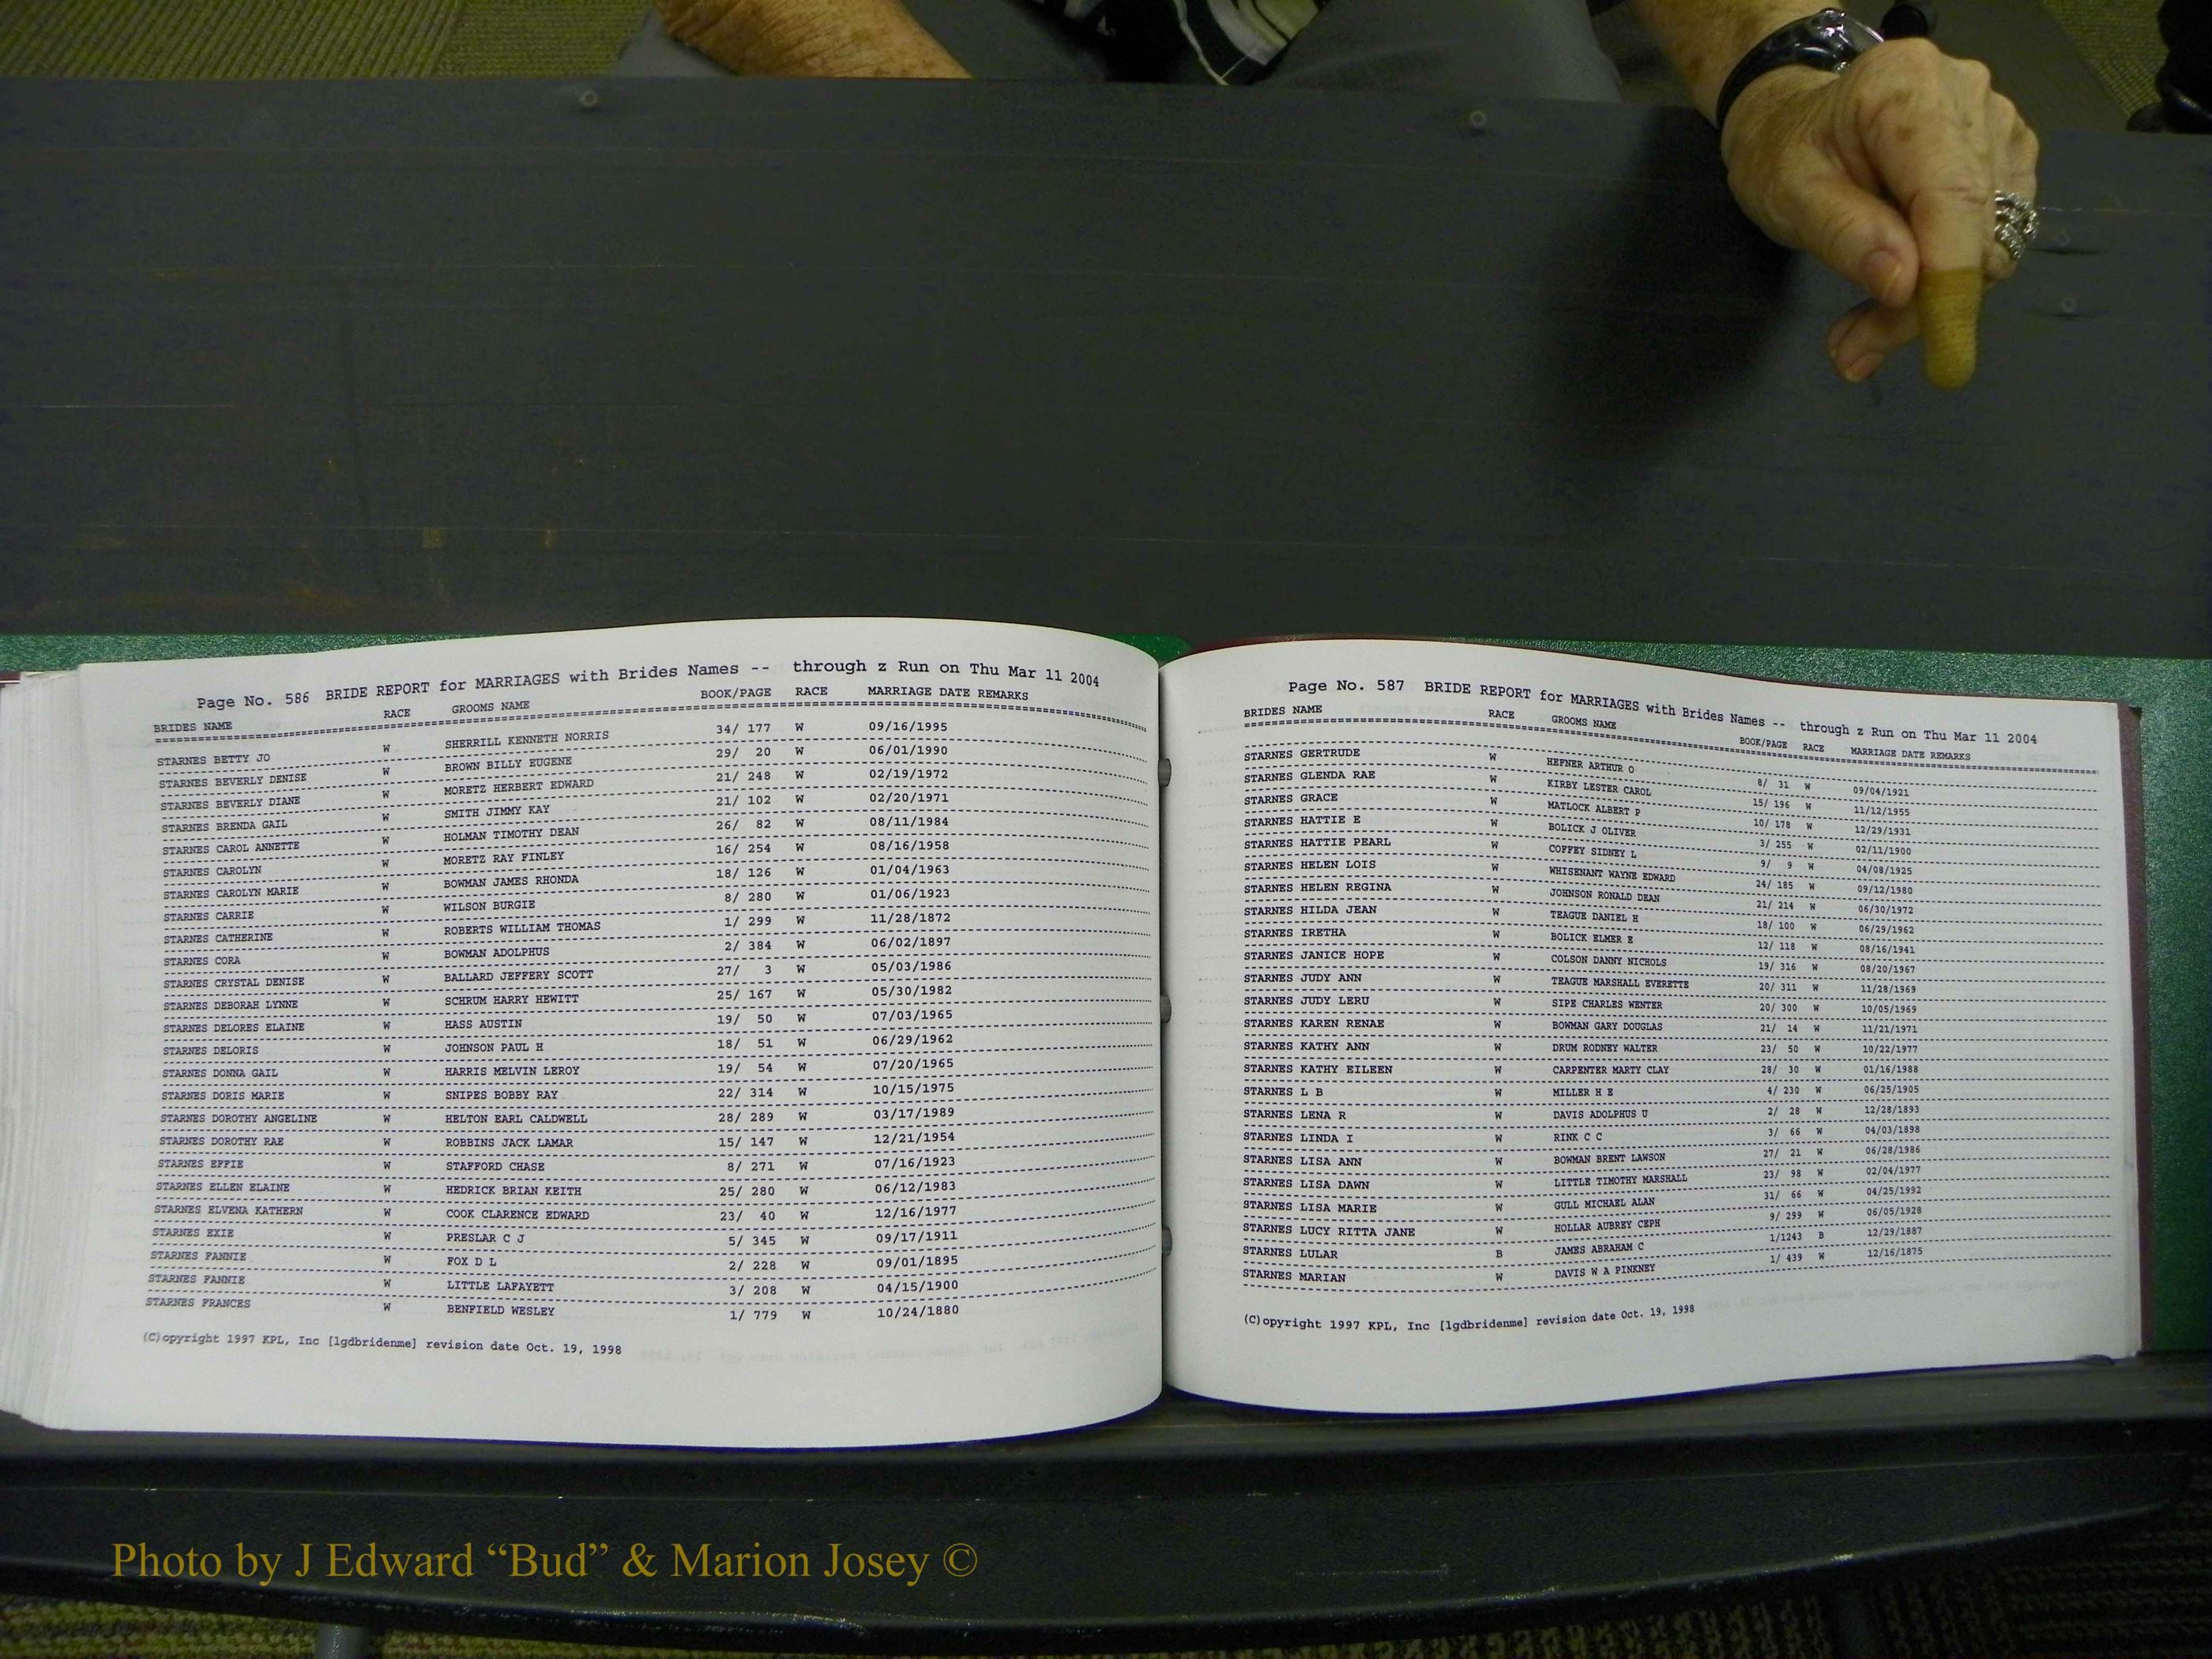 Page No. 586 BRIDE REPORT for MARRIAGES with Brides Names -- through z Run on Thu Mar 11 2004
BRIDES NAME RACE GROOMS NAME BOOK/PAGE RACE MARRIAGE DATE REMARKS
STARNES BETTY JO W SHERRILL KENNETH NORRIS 34/ 177 W 09/16/1995
STARNES BEVERLY DENISE W BROWN BILLY EUGENE 29/ 20 W 06/01/1990
STARNES BEVERLY DIANE W MORETZ HERBERT EDWARD 21/ 248 W 02/19/1972
STARNES BRENDA GAIL W SMITH JIMMY KAY 21/ 102 W 02/20/1971
STARNES CAROL ANNETTE W HOLMAN TIMOTHY DEAN 26/ 82 W 08/11/1984
STARNES CAROLYN W MORETZ RAY FINLEY 16/ 254 W 08/16/1958
STARNES CAROLYN MARIE W BOWMAN JAMES RHONDA 18/ 126 W 01/04/1963
STARNES CARRIE W WILSON BURGIE 8/ 280 W 01/06/1923
STARNES CATHERINE W ROBERTS WILLIAM THOMAS 1/ 299 W 11/28/1872
STARNES CORA W BOWMAN ADOLPHUS 2/ 384 W 06/02/1897
STARNES CRYSTAL DENISE W BALLARD JEFFERY SCOTT 27/ 3 W 05/03/1986
STARNES DEBORAH LYNNE W SCHRUM HARRY HEWITT 25/ 167 W 05/30/1982
STARNES DELORES ELAINE W HASS AUSTIN 19/ 50 W 07/03/1965
STARNES DELORIS W JOHNSON PAUL H 18/ 51 W 06/29/1962
STARNES DONNA GAIL W HARRIS MELVIN LEROY 19/ 54 W 07/20/1965
STARNES DORIS MARIE W SNIPES BOBBY RAY 22/ 314 W 10/15/1975
STARNES DOROTHY ANGELINE W HELTON EARL CALDWELL 28/ 289 W 03/17/1989
STARNES DOROTHY RAE W ROBBINS JACK LAMAR 15/ 147 W 12/21/1954
STARNES EFFIE W STAFFORD CHASE 8/ 271 W 07/16/1923
STARNES ELLEN ELAINE W HEDRICK BRIAN KEITH 25/ 280 W 06/12/1983
STARNES ELVENA KATHERN W COOK CLARENCE EDWARD 23/ 40 W 12/16/1977
STARNES EXIE W PRESLAR C J 5/ 345 W 09/17/1911
STARNES FANNIE W FOX D L 2/ 228 W 09/01/1895
STARNES FANNIE W LITTLE LAFAYETT 3/ 208 W 04/15/1900
STARNES FRANCES W BENFIELD WESLEY 1/ 779 W 10/24/1880
(C)opyright 1997 KPL, Inc [lgdbridenme] revision date Oct. 19, 1998
Page No. 587 BRIDE REPORT for MARRIAGES with Brides Names -- through z Run on Thu Mar 11 2004
BRIDES NAME RACE GROOMS NAME BOOK/PAGE RACE MARRIAGE DATE REMARKS
STARNES GERTRUDE W HEFNER ARTHUR O 8/ 31 W 09/04/1921
STARNES GLENDA RAE W KIRBY LESTER CAROL 15/ 196 W 11/12/1955
STARNES GRACE W MATLOCK ALBERT P 10/ 178 W 12/29/1931
STARNES HATTIE E W BOLICK J OLIVER 3/ 255 W 02/11/1900
STARNES HATTIE PEARL W COFFEY SIDNEY L 9/ 9 W 04/08/1925
STARNES HELEN LOIS W WHISENANT WAYNE EDWARD 24/ 185 W 09/12/1980
STARNES HELEN REGINA W JOHNSON RONALD DEAN 21/ 214 W 06/30/1972
STARNES HILDA JEAN W TEAGUE DANIEL H 18/ 100 W 06/29/1962
STARNES IRETHA W BOLICK ELMER E 12/ 118 W 08/16/1941
STARNES JANICE HOPE W COLSON DANNY NICHOLS 19/ 316 W 08/20/1967
STARNES JUDY ANN W TEAGUE MARSHALL EVERETTE 20/ 311 W 11/28/1969
STARNES JUDY LERU W SIPE CHARLES WENTER 20/ 300 W 10/05/1969
STARNES KAREN RENAE W BOWMAN GARY DOUGLAS 21/ 14 W 11/21/1971
STARNES KATHY ANN W DRUM RODNEY WALTER 23/ 50 W 10/22/1977
STARNES KATHY EILEEN W CARPENTER MARTY CLAY 28/ 30 W 01/16/1988
STARNES L B W MILLER H E 4/ 230 W 06/25/1905
STARNES LENA R W DAVIS ADOLPHUS U 2/ 28 W 12/28/1893
STARNES LINDA I W RINK C C 3/ 66 W 04/03/1898
STARNES LISA ANN W BOWMAN BRENT LAWSON 27/ 21 W 06/28/1986
STARNES LISA DAWN W LITTLE TIMOTHY MARSHALL 23/ 98 W 02/04/1977
STARNES LISA MARIE W GULL MICHAEL ALAN 31/ 66 W 04/25/1992
STARNES LUCY RITTA JANE W HOLLAR AUBREY CEPH 9/ 299 W 06/05/1928
STARNES LULAR B JAMES ABRAHAM C 1/1243 B 12/29/1887
STARNES MARIAN W DAVIS W A PINKNEY 1/ 439 W 12/16/1875
(C)opyright 1997 KPL, Inc [lgdbridenme] revision date Oct. 19, 1998
Photo by J Edward “Bud” & Marion Josey ©